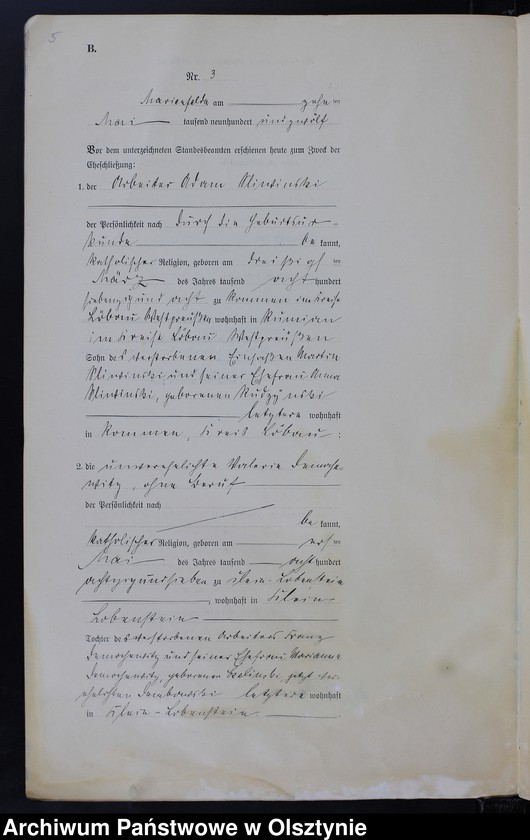 5
B.
Nr. 3
Marienfelde am zehn ten
Mai tausend neunhundert und zwölf
Vor dem unterzeichneten Standesbeamten erschienen heute zum Zweck der
Eheschließung:
1. der Arbeiter Adam Sliwinski
der Persönlichkeit nach durch die Geburtsur-
kunde be kannt,
katholischer Religion, geboren am dreißigst en
März des Jahres tausend acht hundert
siebenzig und acht zu Rommen im Kreise
Löbau Westpreußen wohnhaft in Rumian
im Kreise Löbau Westpreußen
Sohn des verstorbenen Einsassen Martin
Sliwinski und seiner Ehefrau Anna
Sliwinski, geborenen Rudzynski
letztere wohnhaft
in Rommen, Kreis Löbau:
2. die unverehelichte Valeria
ohne Beruf
der Persönlichkeit nach
be kannt,
katholischer Religion, geboren am ers ten
Mai des Jahres tausend acht hundert
achtzig und sieben zu Klein-Lobenstein
, wohnhaft in Klein-
Lobenstein
Tochter des verstorbenen Arbeiters Franz
und seiner Ehefrau Marianna
geborenen jetzt ver-
ehelichten Dembowski letztere wohnhaft
in Klein-Lobenstein.
Archiwum Państwowe w Olsztynie